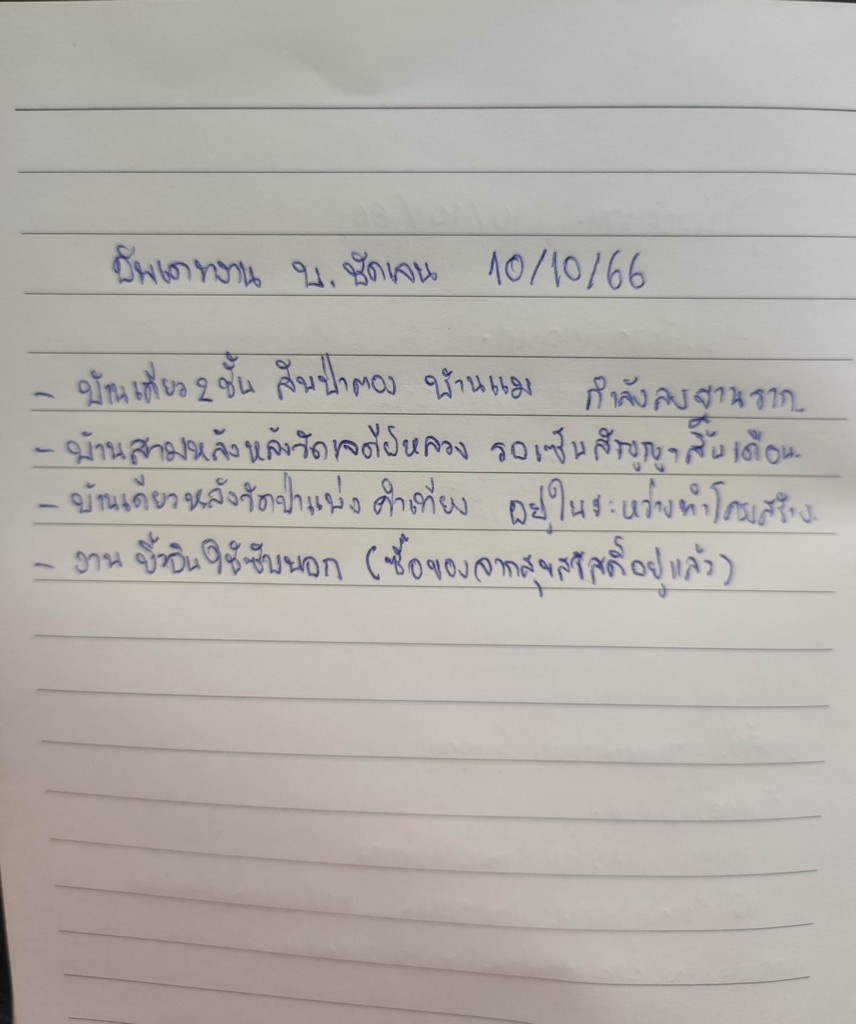 อัพเดทงาน บ. ชัดเจน 10/10/66
- บ้านเดียว 2 ชั้น สันป่าตอง บ้านแม กำลังลงฐานราก
- บ้านสามหลังหลังวัดเจดีย์หลวง รอเซ็นสัญญาสิ้นเดือน
- บ้านเดียวหลังวัดป่าแพ่ง คำเที่ยง อยู่ในระหว่างทำโครงสร้าง
- งานบิ้วอินใช้ซับนอก (ซื้อของจากสุขสวัสดิ์อยู่แล้ว)